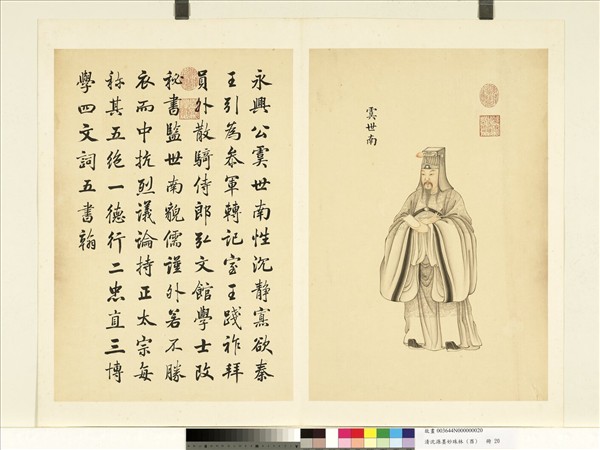 虞世南
永興公虞世南性沉靜寡欲秦
王引為參軍轉記室王踐祚拜
員外散騎侍郎弘文館學士改
秘書監世南貌儒謹外若不勝
衣而中抗烈議論持正太宗每
称其五絕一德行二忠直三博
學四文詞五書翰
故畫 003644N000000020
墨妙珠林 冊 20